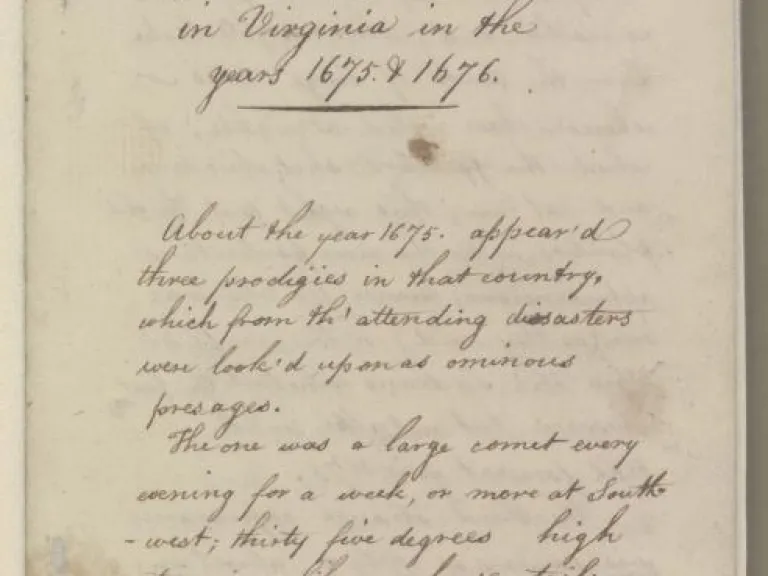 in Virginia in the
years 1675. & 1676.
About the year 1675. appear'd
three prodigies in that country,
which from th' attending disasters
were look'd upon as ominous
presages.
The one was a large comet every
evening for a week, or more at South-
-west; thirty five degrees high